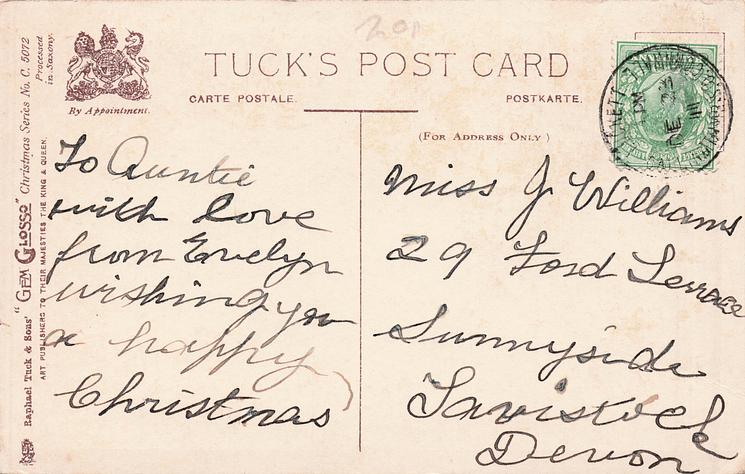 20p
TUCK'S POST CARD
By Appointment.
CARTE POSTALE.
POSTKARTE.
(FOR ADDRESS ONLY)
Raphael Tuck & Sons' "GEM GLOSSO" Christmas Series No. C. 5072
ART PUBLISHERS TO THEIR MAJESTIES THE KING & QUEEN.
Processed
in Saxony.
To Auntie
with love
from Evelyn
wishing you
a happy
Christmas
Miss J Williams
29 Ford Terrace
Sunnyside
Tavistock
Devon